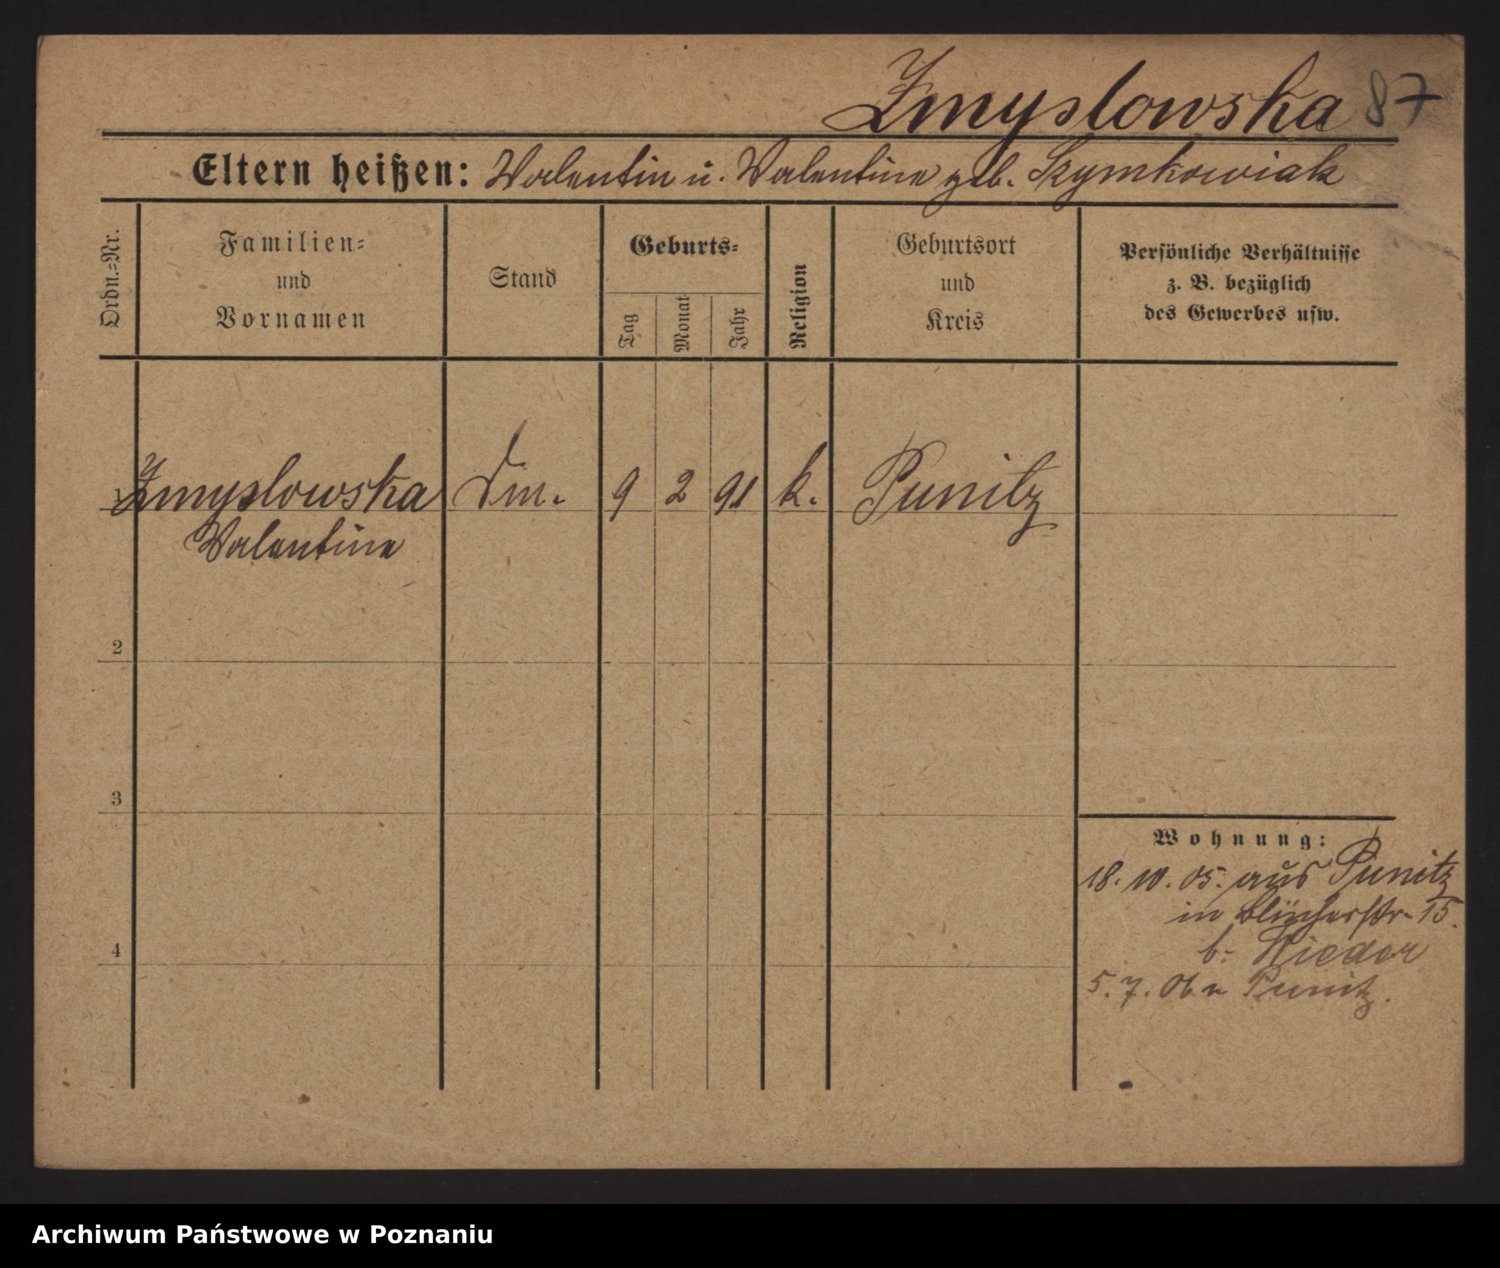 Zmyslowska 87
Eltern heißen: Valentin u. Valentine geb. Szymkowiak
Ordn.=Nr.
Familien=
und
Vornamen
Stand
Geburts=
Tag
Monat
Jahr
Religion
Geburtsort
und
Kreis
Persönliche Verhältnisse
z. B. bezüglich
des Gewerbes usw.
1 Zmyslowska Dm. 9 2 91 k. Punitz
Valentine
2
3
4
Wohnung:
18. 10. 05. aus Punitz
in Blücherstr. 15.
b.
5. 7. 06 n Punitz.
Archiwum Państwowe w Poznaniu